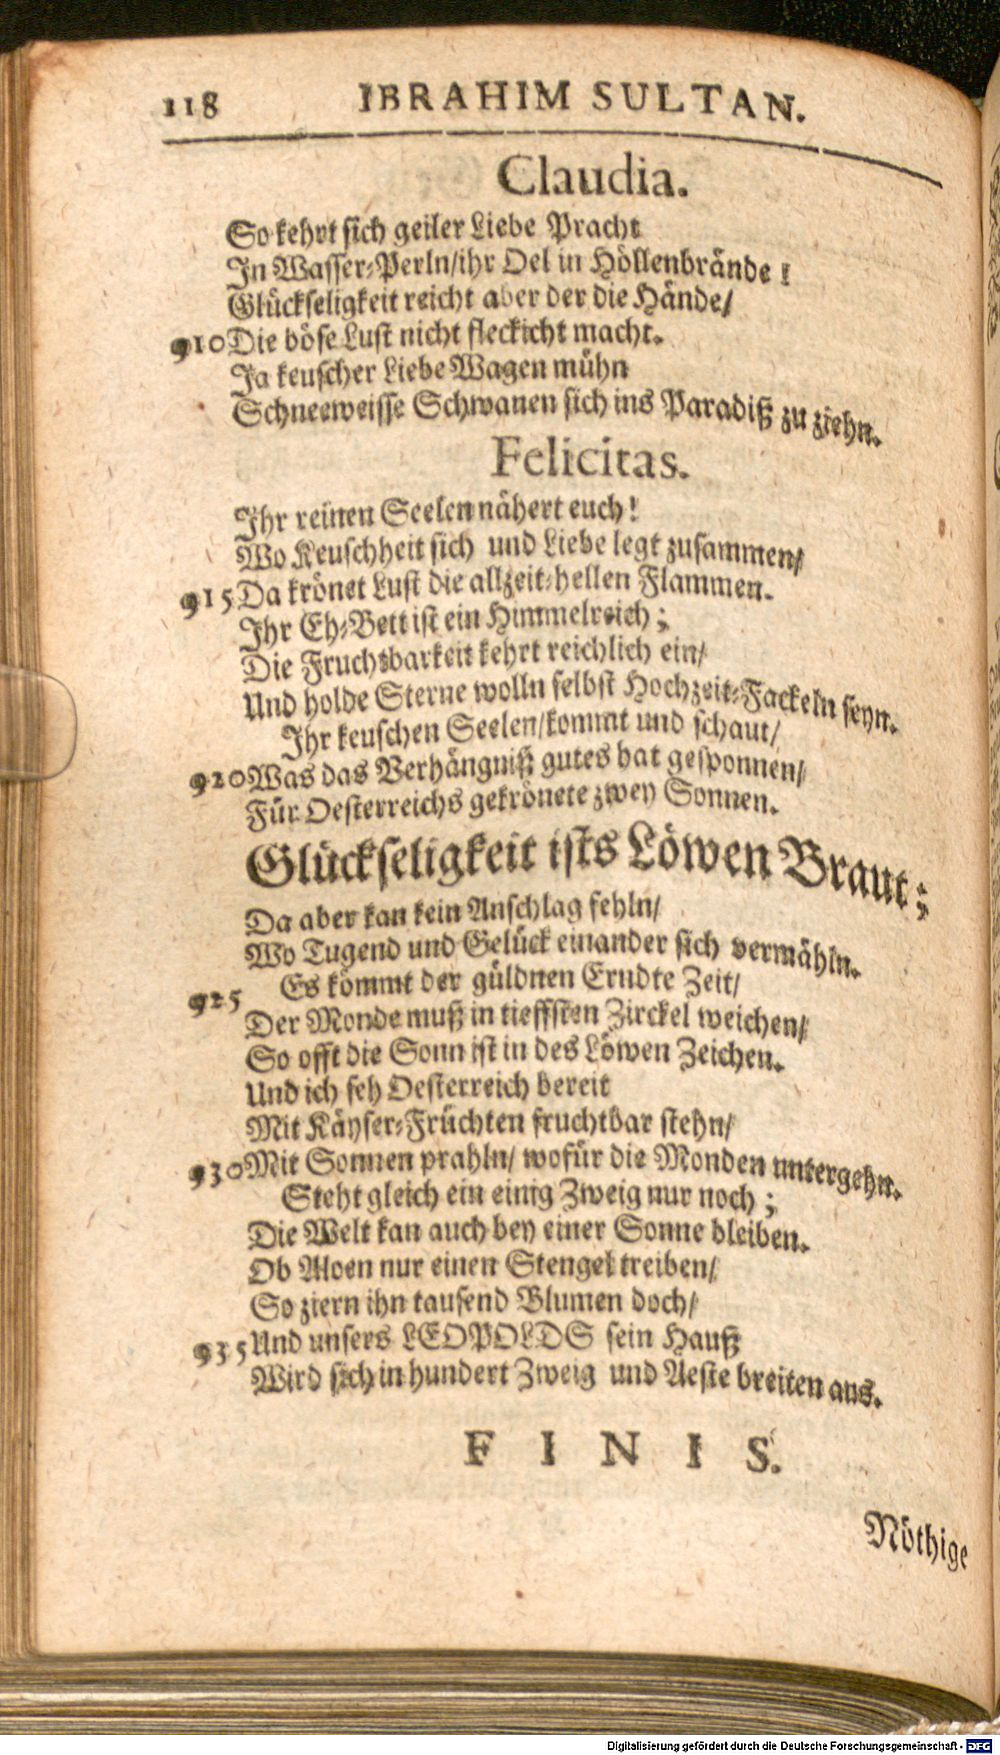 118 IBRAHIM SULTAN.
Claudia.
So kehrt sich geiler Liebe Pracht
In Wasser-Perln/ihr Oel in Höllenbrände!
Glückseligkeit reicht aber der die Hände/
910 Die böse Lust nicht fleckicht macht.
Ja keuscher Liebe Wagen mühn
Schneeweisse Schwanen sich ins Paradiß zu ziehn.
Felicitas.
Ihr reinen Seelen nähert euch!
Wo Keuschheit sich und Liebe legt zusammen/
915 Da krönet Lust die allzeit-hellen Flammen.
Ihr Eh-Bett ist ein Himmelreich;
Die Fruchtsbarkeit kehrt reichlich ein/
Und holde Sterne wolln selbst Hochzeit-Fackeln seyn.
Ihr keuschen Seelen/kommt und schaut/
920 Was das Verhängniß gutes hat gesponnen/
Für Oesterreichs gekrönete zwey Sonnen.
Glückseligkeit ists Löwen Braut;
Da aber kan kein Anschlag fehln/
Wo Tugend und Gelück einander sich vermähln.
925 Es kömmt der güldnen Erndte Zeit/
Der Monde muß in tieffsten Zirckel weichen/
So offt die Sonn ist in des Löwen Zeichen.
Und ich seh Oesterreich bereit
Mit Käyser-Früchten fruchtbar stehn/
930 Mit Sonnen prahln/ wofür die Monden untergehn.
Steht gleich ein einig Zweig nur noch;
Die Welt kan auch bey einer Sonne bleiben.
Ob Aloen nur einen Stengel treiben/
So ziern ihn tausend Blumen doch/
935 Und unsers LEOPOLDS sein Hauß
Wird sich in hundert Zweig und Aeste breiten aus.
F I N I S.
Nöthige
Digitalisierung gefördert durch die Deutsche Forschungsgemeinschaft - DFG